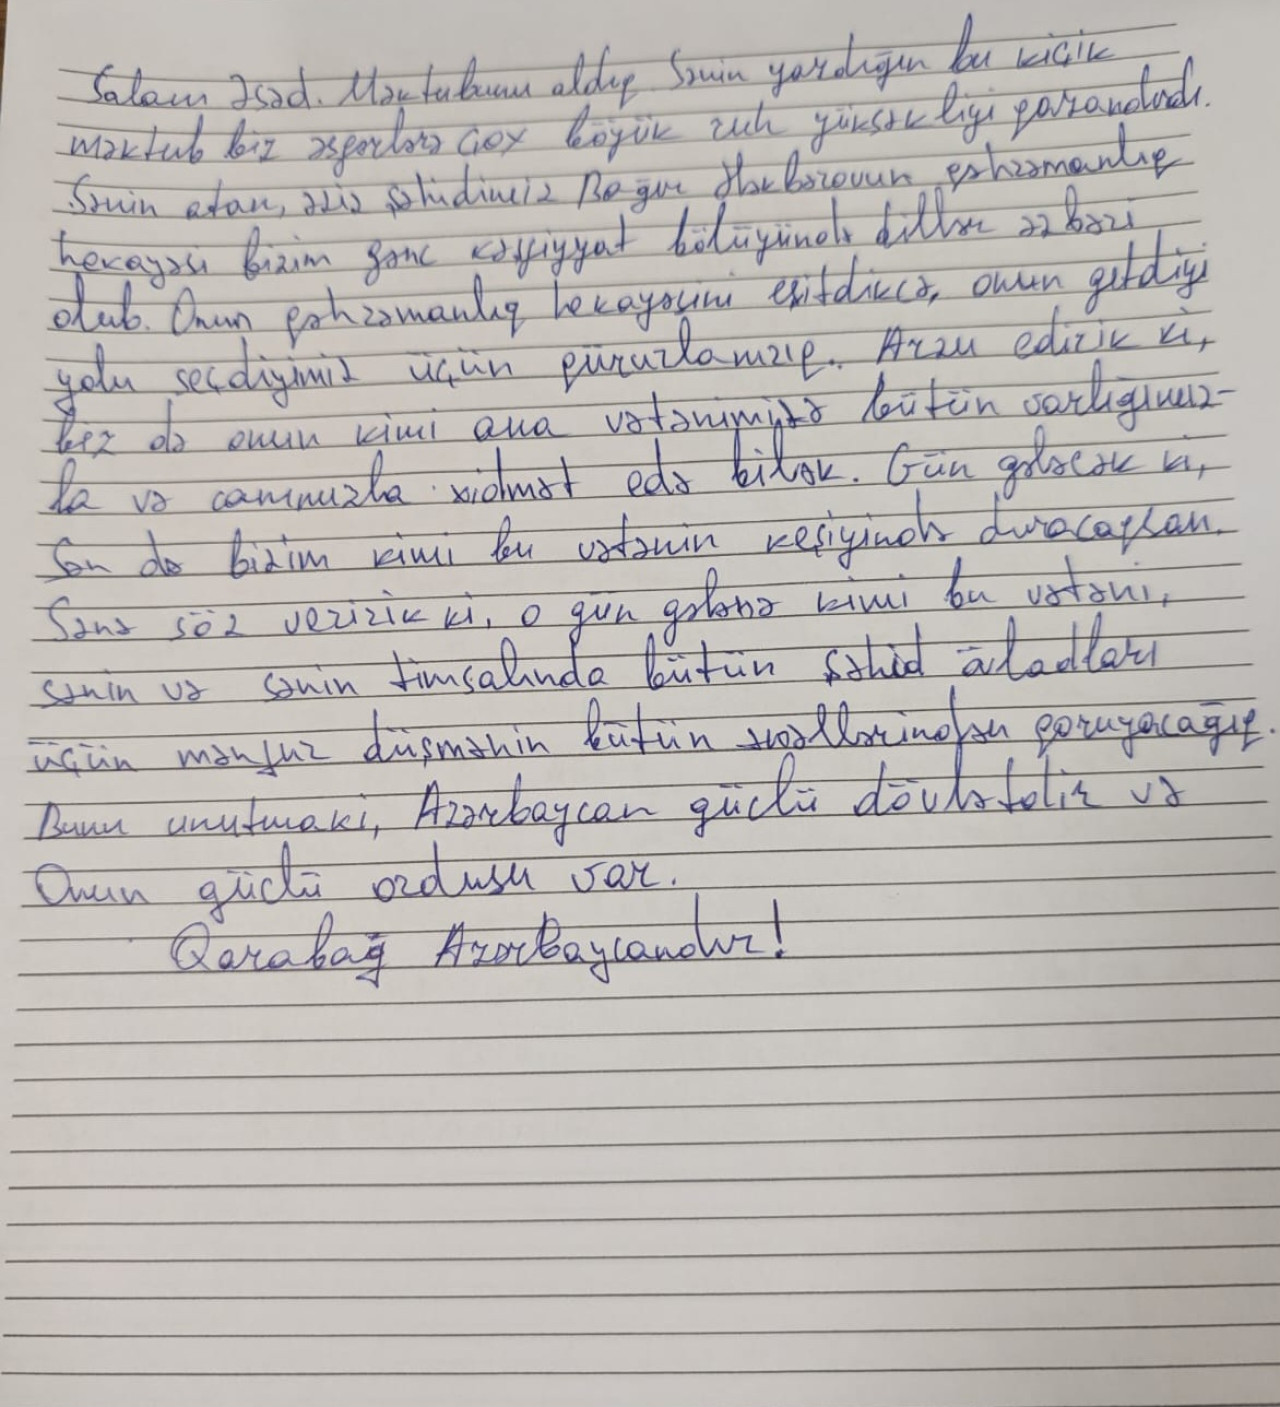 Salam Əsəd. Məktubunu aldıq. Sənin yazdığın bu kiçik
məktub biz əsgərlərə çox böyük ruh yüksəkliyi qazandırdı.
Sənin atan, əziz şəhidimiz Bağır Ələkbərovun qəhrəmanlıq
hekayəsi bizim gənc kəşfiyyat bölüyündə dillər əzbəri
olub. Onun qəhrəmanlıq hekayəsini eşitdikcə, onun getdiyi
yolu seçdiyimiz üçün qürurlanırıq. Arzu edirik ki,
biz də onun kimi ana vətənimizə bütün varlığımız-
la və canımızla xidmət edə bilək. Gün gələcək ki,
Sən də bizim kimi bu vətənin keşiyində duracaqsan.
Sənə söz veririk ki, o gün gələnə kimi bu vətəni,
sənin və sənin timsalında bütün şəhid övladları
üçün mənfur düşmənin bütün əməllərindən qoruyacağıq.
Bunu unutmaki, Azərbaycan güclü dövlətdir və
Onun güclü ordusu var.
Qarabağ Azərbaycandır!